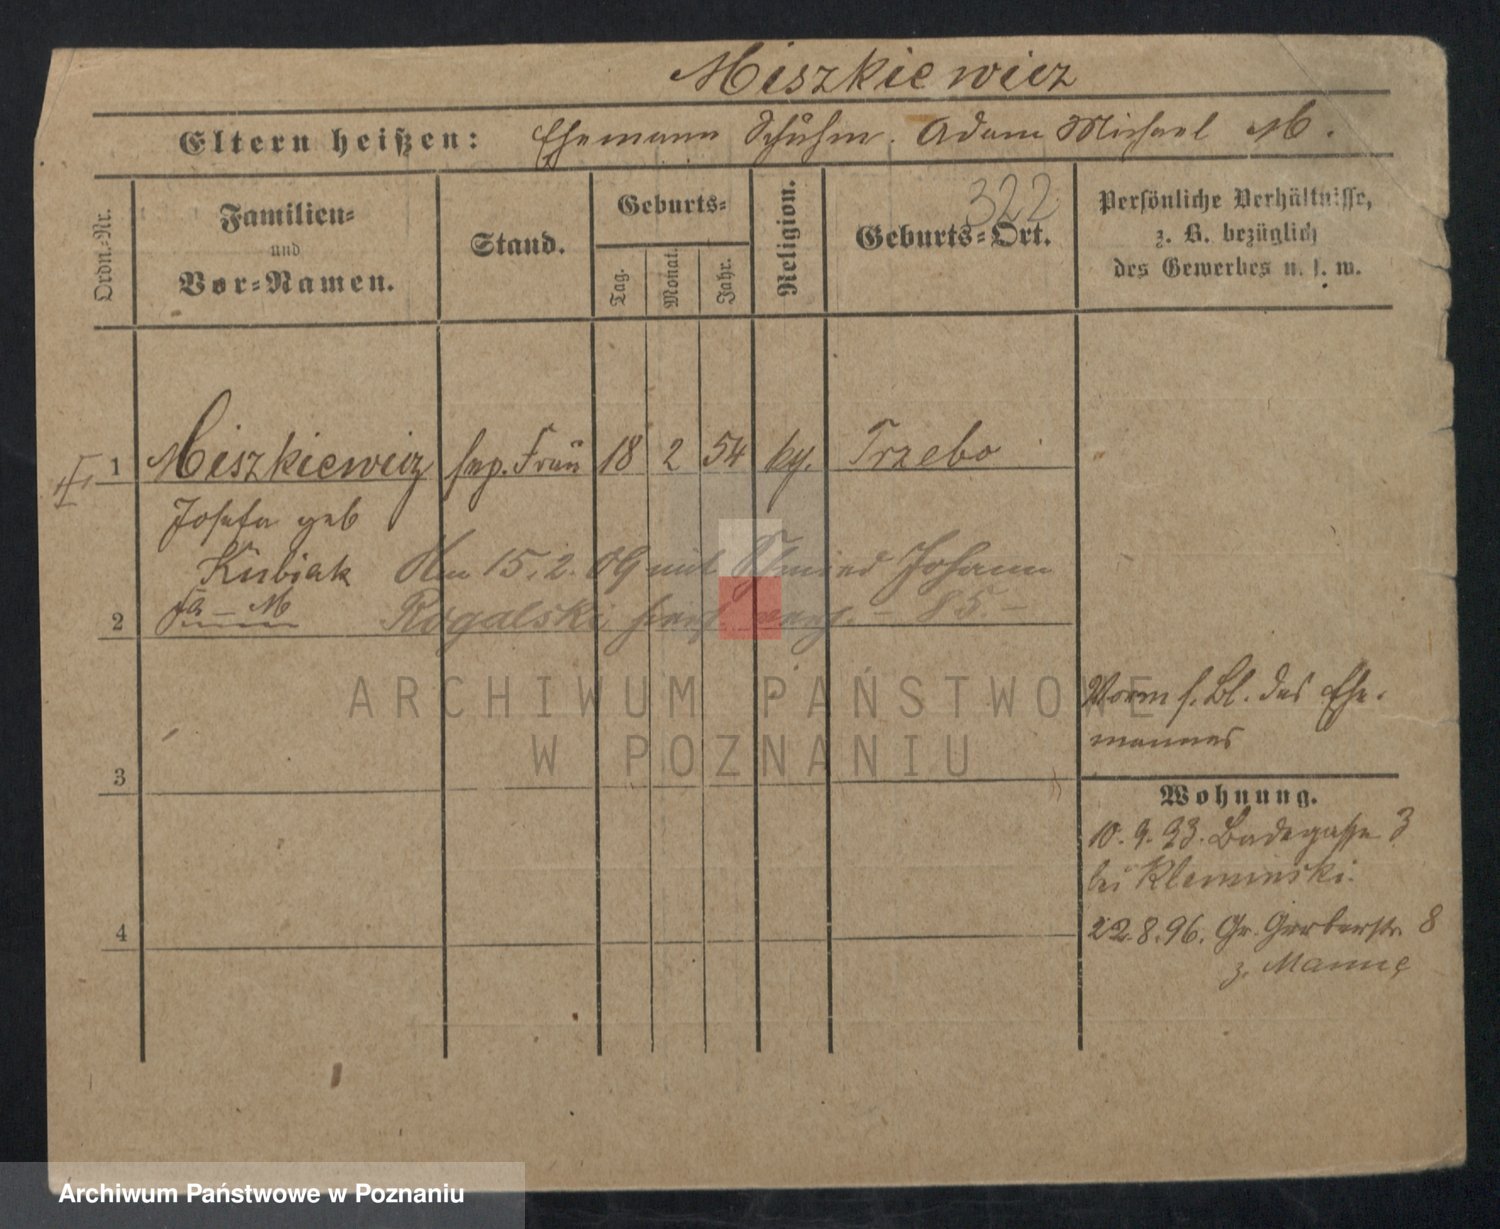 Miszkiewicz
Eltern heißen: Ehemann Schuhm. Adam Michael M.
322
Ordn.-Nr.
Familien-
und
Vor-Namen.
Stand.
Geburts-
Tag.
Monat.
Jahr.
Religion.
Geburts-Ort.
Persönliche Verhältnisse,
z. B. bezüglich
des Gewerbes u. s. w.
1 Miszkiewicz sep. Frau 18 2 54 kg. Trzebo
Josefa geb
Kubiak Am 15.2.09 mit Schmied Johann
2 Rogalski 85.
Vorm s. Bl. des Ehe-
mannes
ARCHIWUM PAŃSTWOWE
W POZNANIU
3
Wohnung.
10.9.93. Badegasse 3
bei Kleminski.
4
22.8.96. Gr. Gerberstr. 8
z. Manne
Archiwum Państwowe w Poznaniu